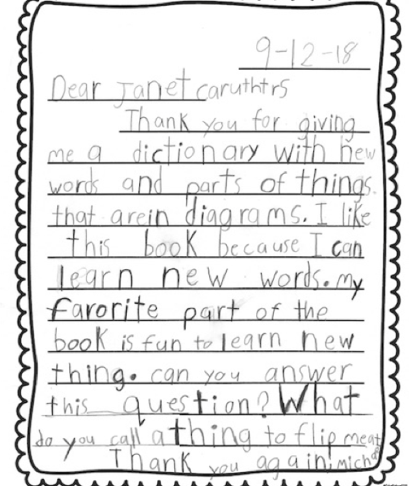 9-12-18
Dear Janet caruthtrs
Thank you for giving
me a dictionary with new
words and parts of things.
that arein diagrams. I like
this book because I can
learn new words. my
farorite part of the
book is fun to learn new
thing. can you answer
this question? What
do you call a thing to flip meat
Thank you again, Mich